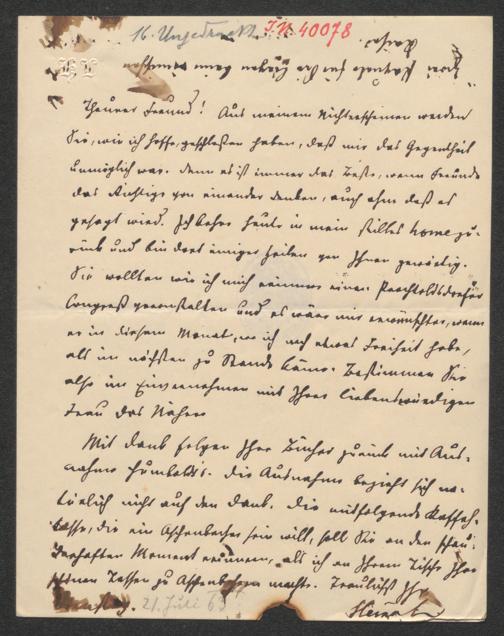 16. Ungedruckt. I.N. 40078
Theurer Freund! Aus meinem Nichterscheinen werden
Sie, wie ich hoffe, geschlossen haben, daß mir das Gegentheil
unmöglich war. Denn es ist immer das Beste, wenn Freunde
das Richtige von einander denken, auch ohne daß es
gesagt wird. Ich kehre heute in mein stilles home zu-
rück und bin dort einiger Zeilen von Ihnen gewärtig.
Sie wollten wie ich mich erinnere einen Perchtoldsdorfer
Congreß veranstalten und es wäre mir erwünschter, wenn
er in diesem Monat, wo ich noch etwas Freiheit habe,
als im nächsten zu Stande käme. Bestimmen Sie
also im Einvernehmen mit Ihrer liebenswürdigen
Frau das Nähere.
Mit Dank folgen Ihre Bücher zurück mit Aus-
nahme Humboldt's. Die Ausnahme bezieht sich na-
türlich nicht auf den Dank. Die mitfolgende Kaffeh-
tasse, die ein Aschenbecher sein will, soll Sie an den schau-
derhaften Moment erinnern, als ich an Ihrem Tische Ihre
schönen Tassen zu Aschenbechern machte. Treulichst Ihr
21. Juli 63